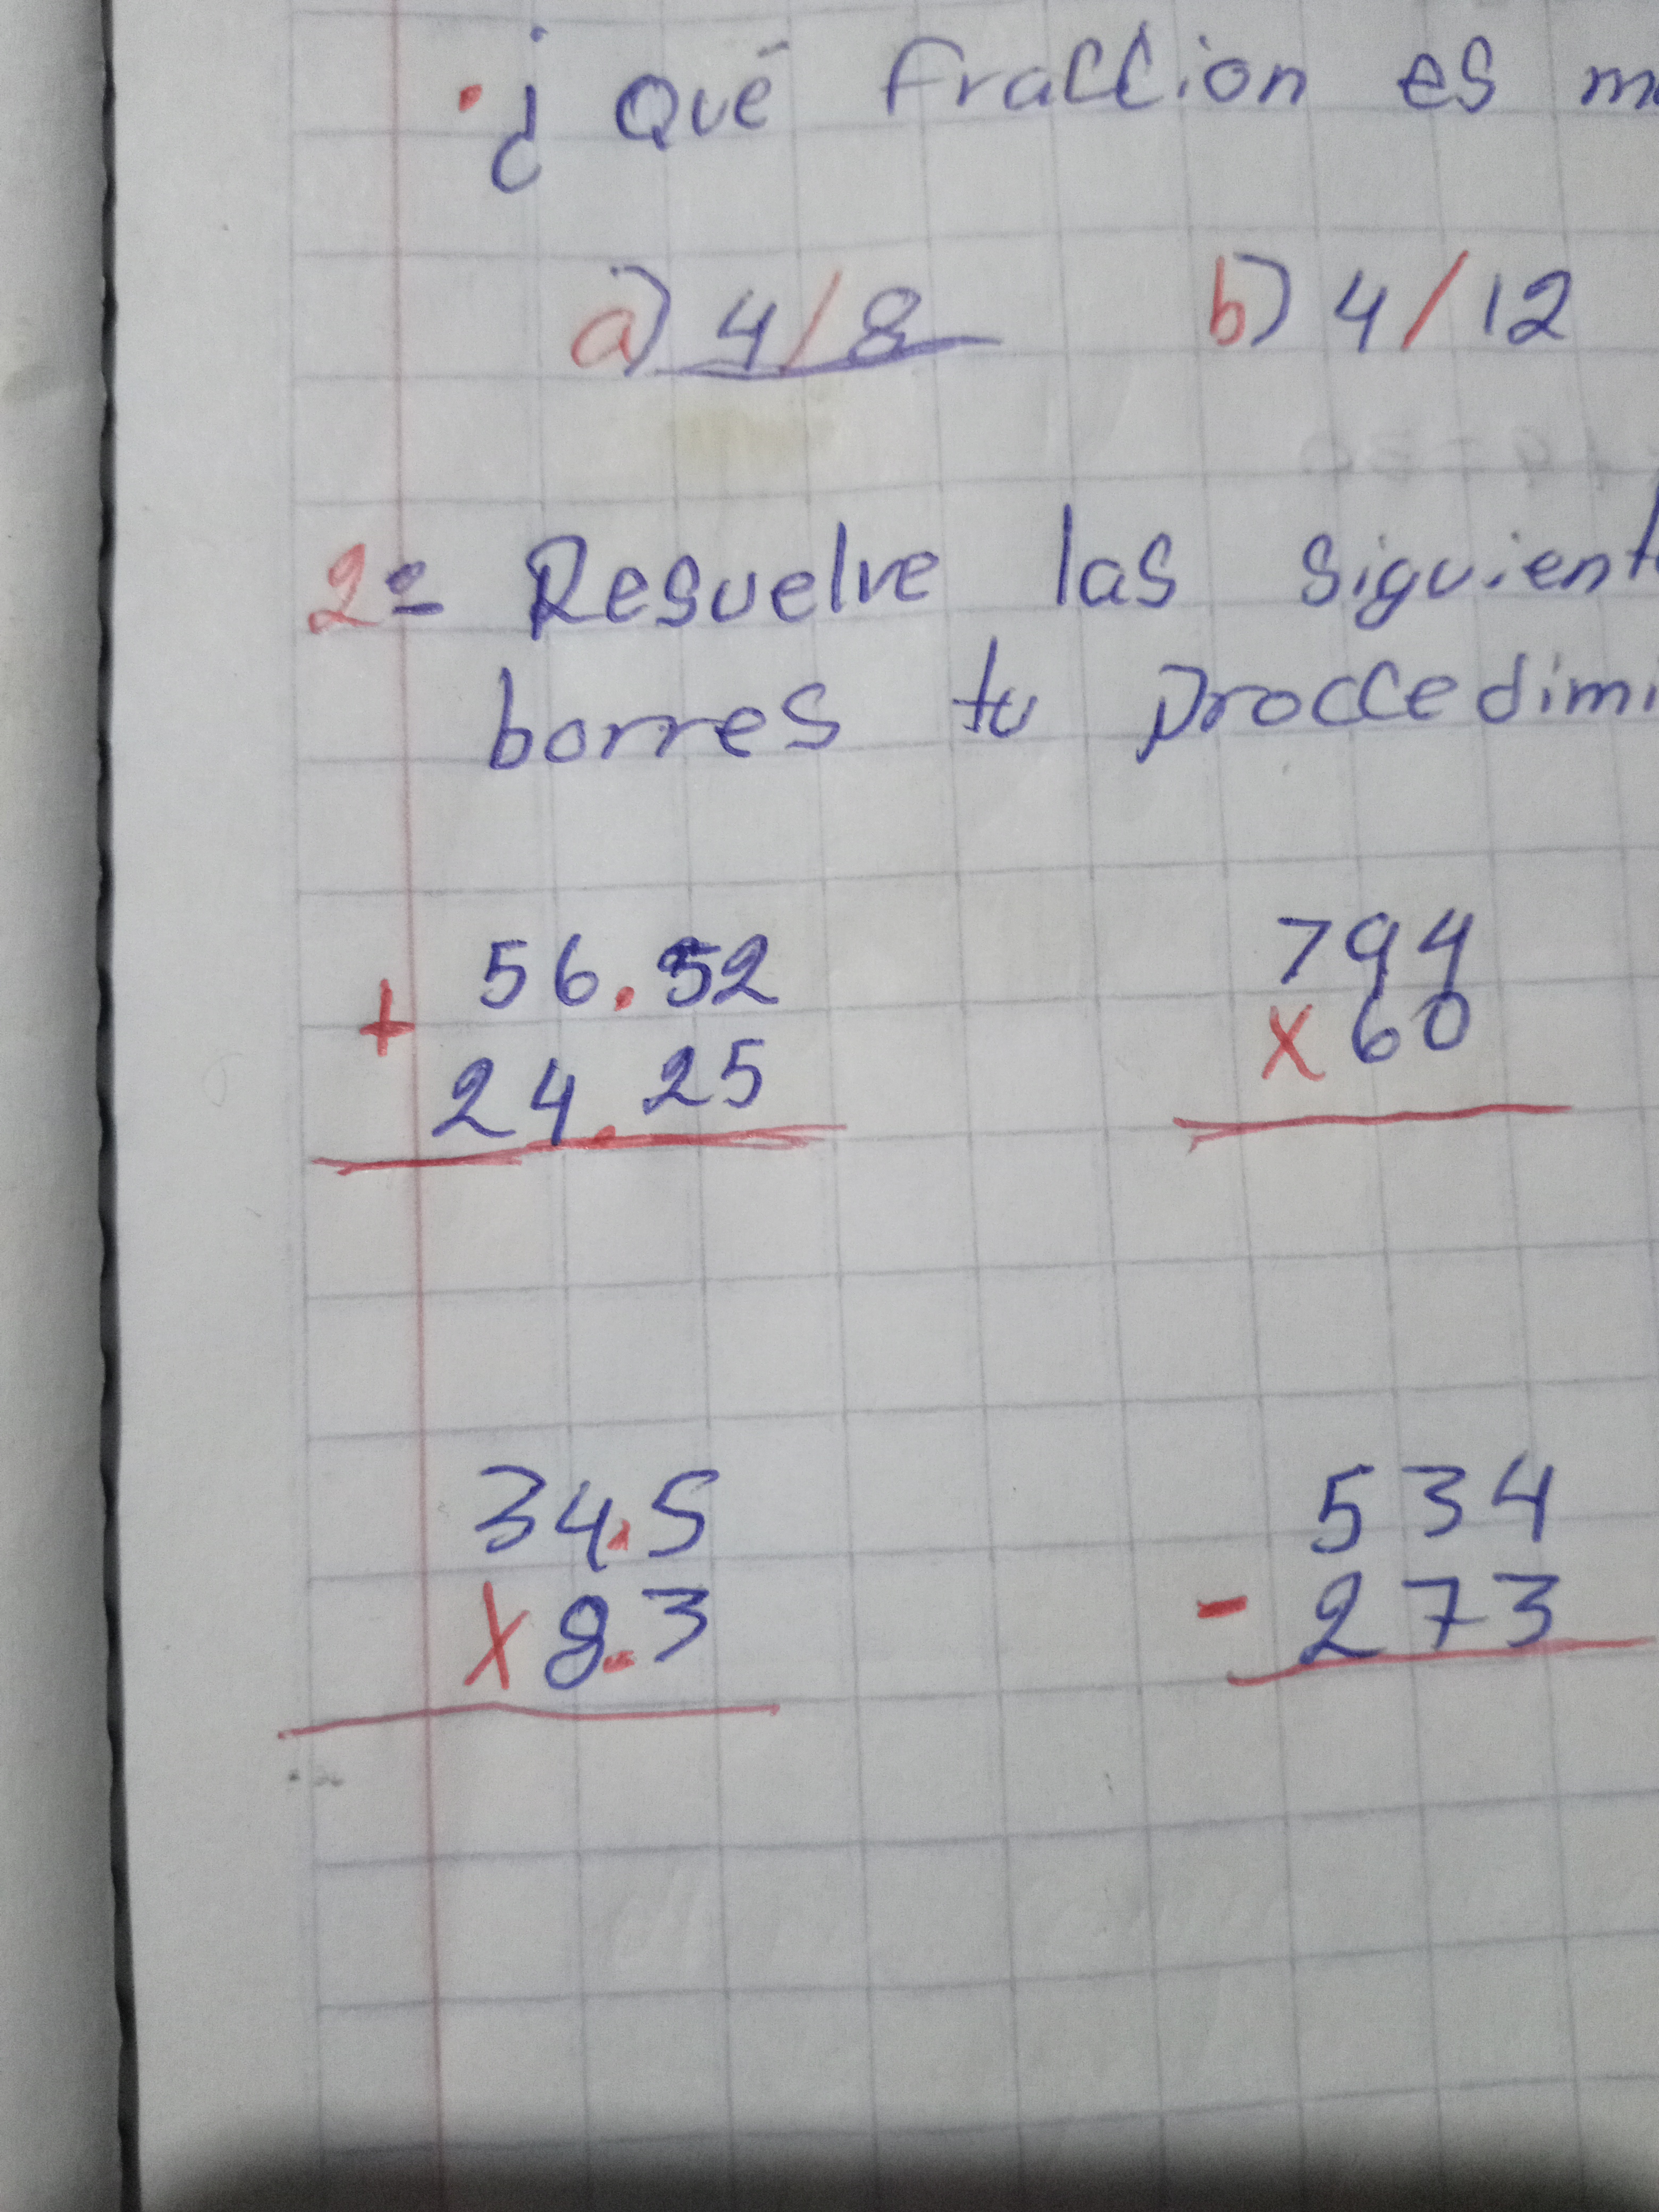 ·¿Qué fraccion es
a) 4/8 b) 4/12
2= Resuelve las siguient
borres tu proccedimi
56.52 794
+ x 60
24.25
34.5 534
x 8.3 - 273